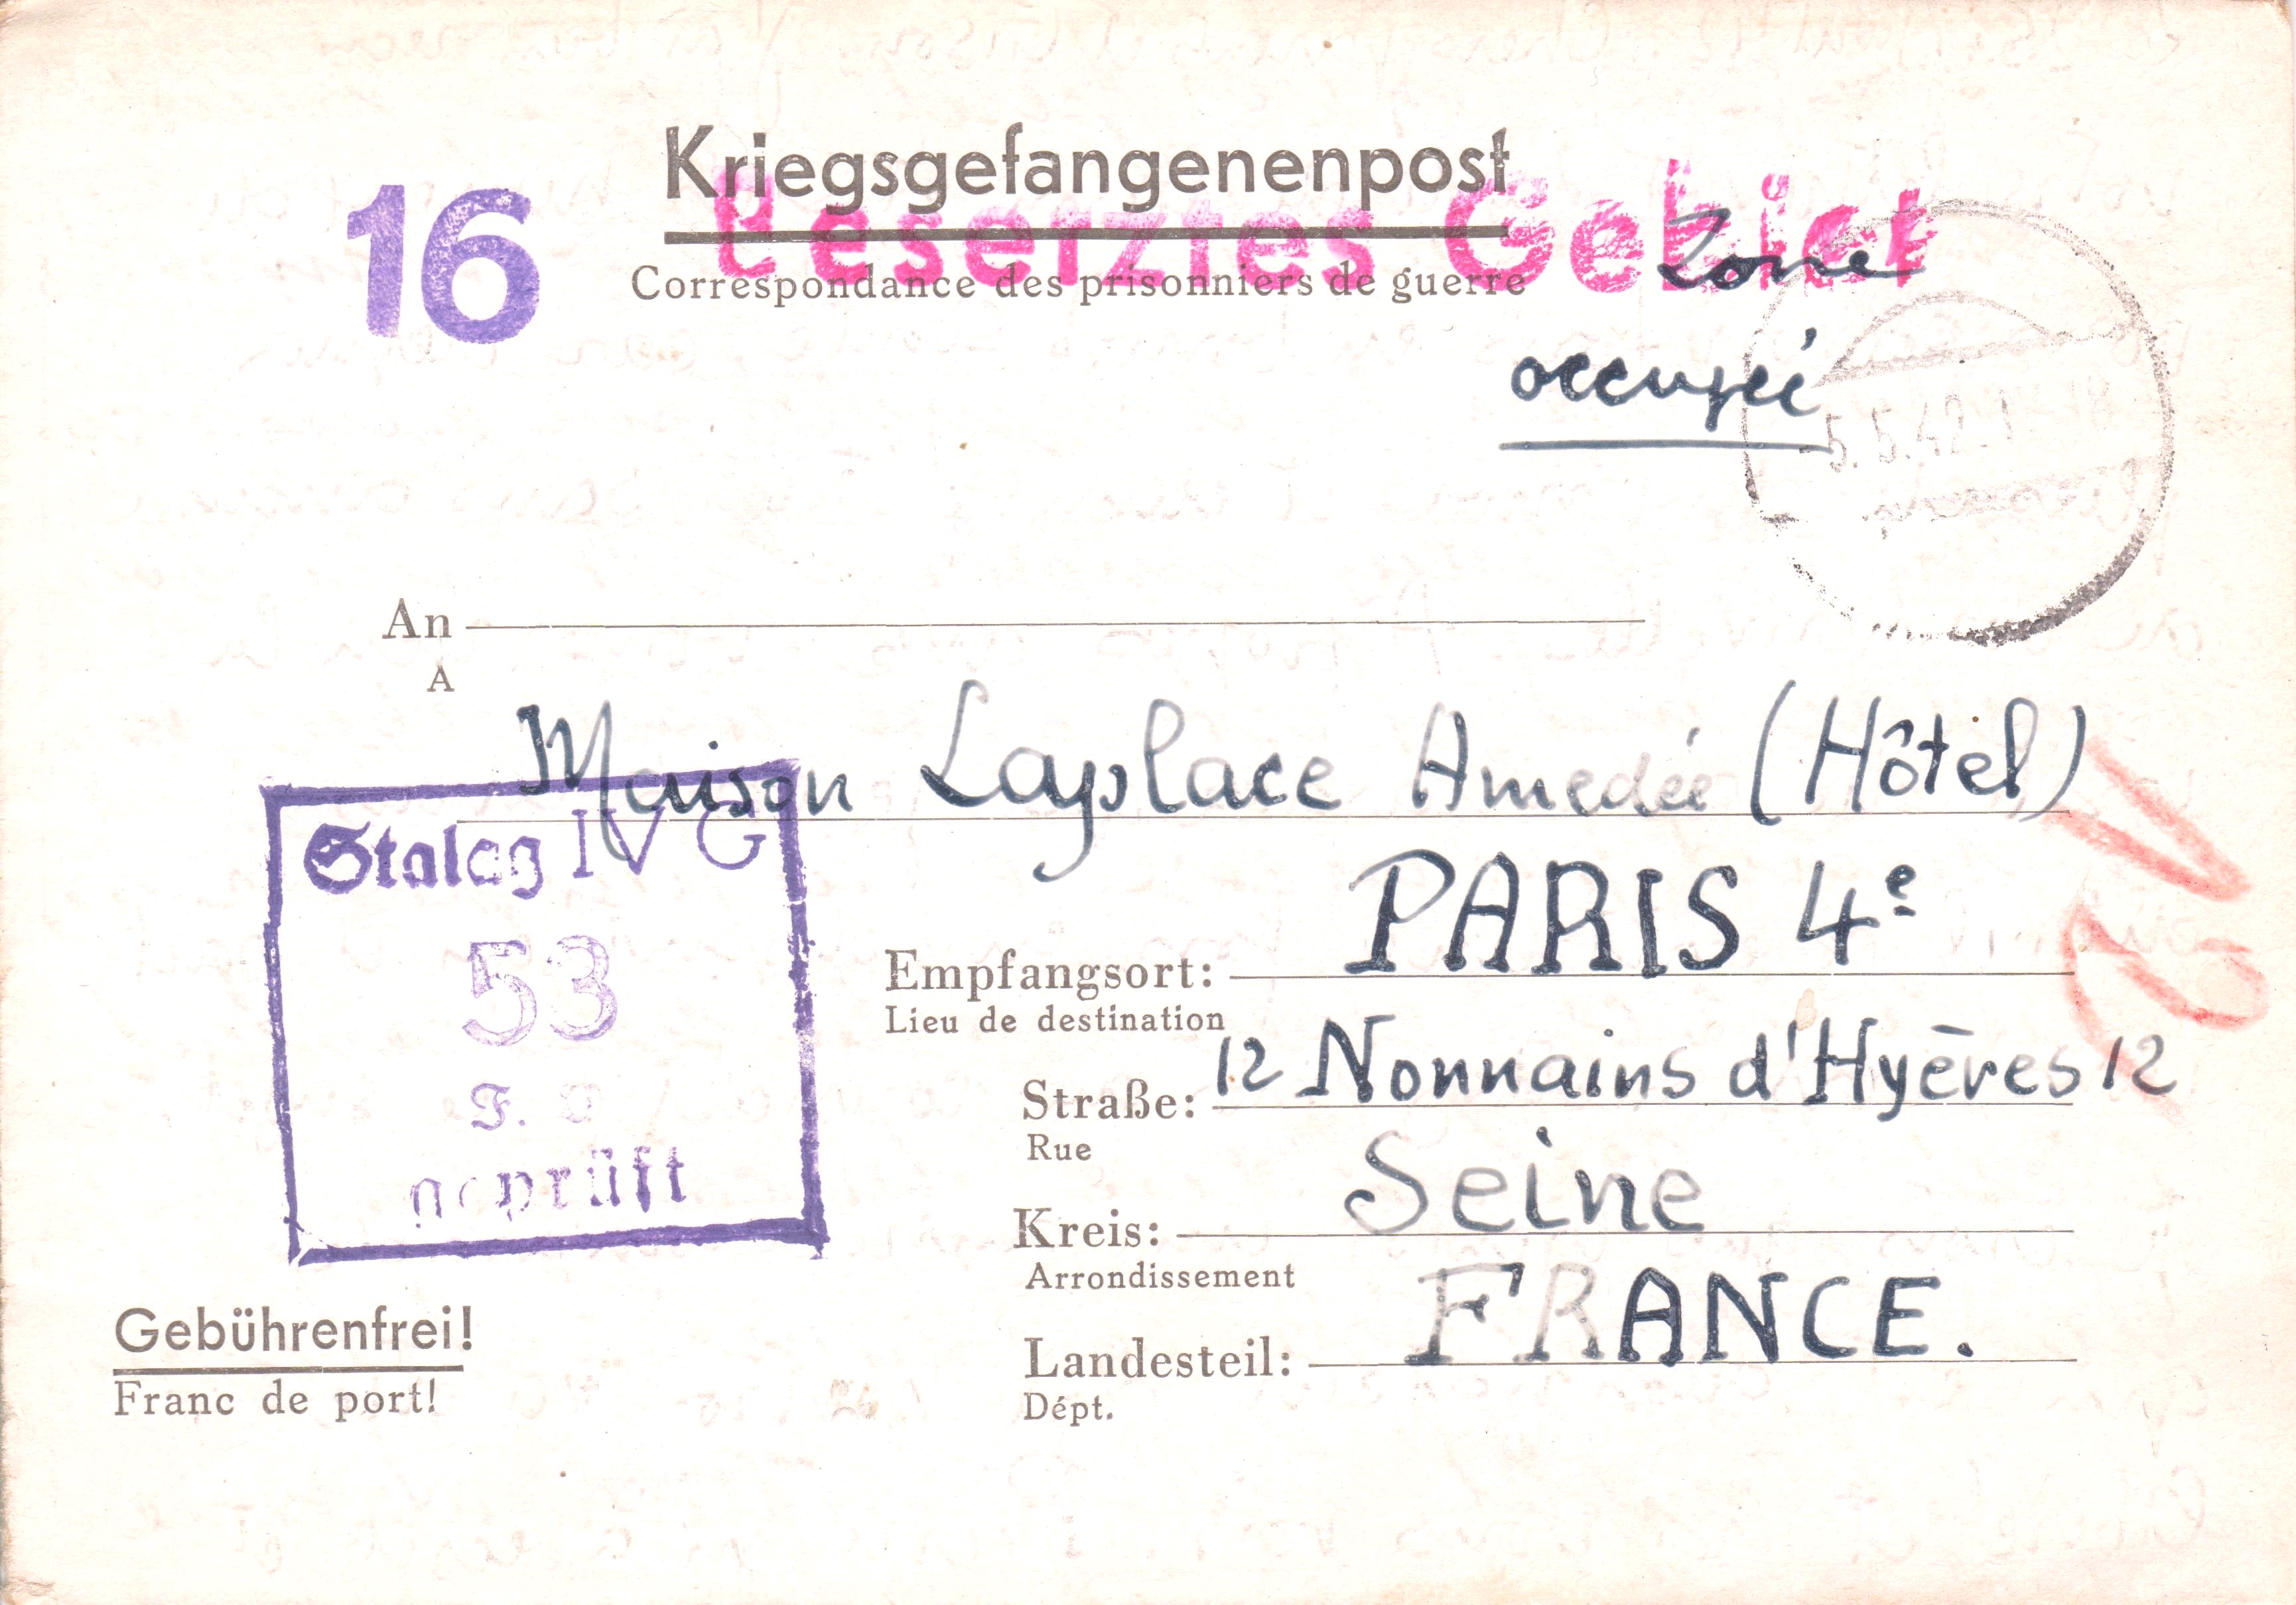 Kriegsgefangenenpost
Besetztes Gebiet
16
Correspondance des prisonniers de guerre
Zone
occupée
5.5.42.
An
A
Maison Laplace Amedée (Hôtel)
Stalag IV G
53
geprüft
PARIS 4e
Empfangsort:
Lieu de destination
12 Nonnains d'Hyères 12
Straße:
Rue
Seine
Kreis:
Arrondissement
FRANCE.
Landesteil:
Dépt.
Gebührenfrei!
Franc de port!